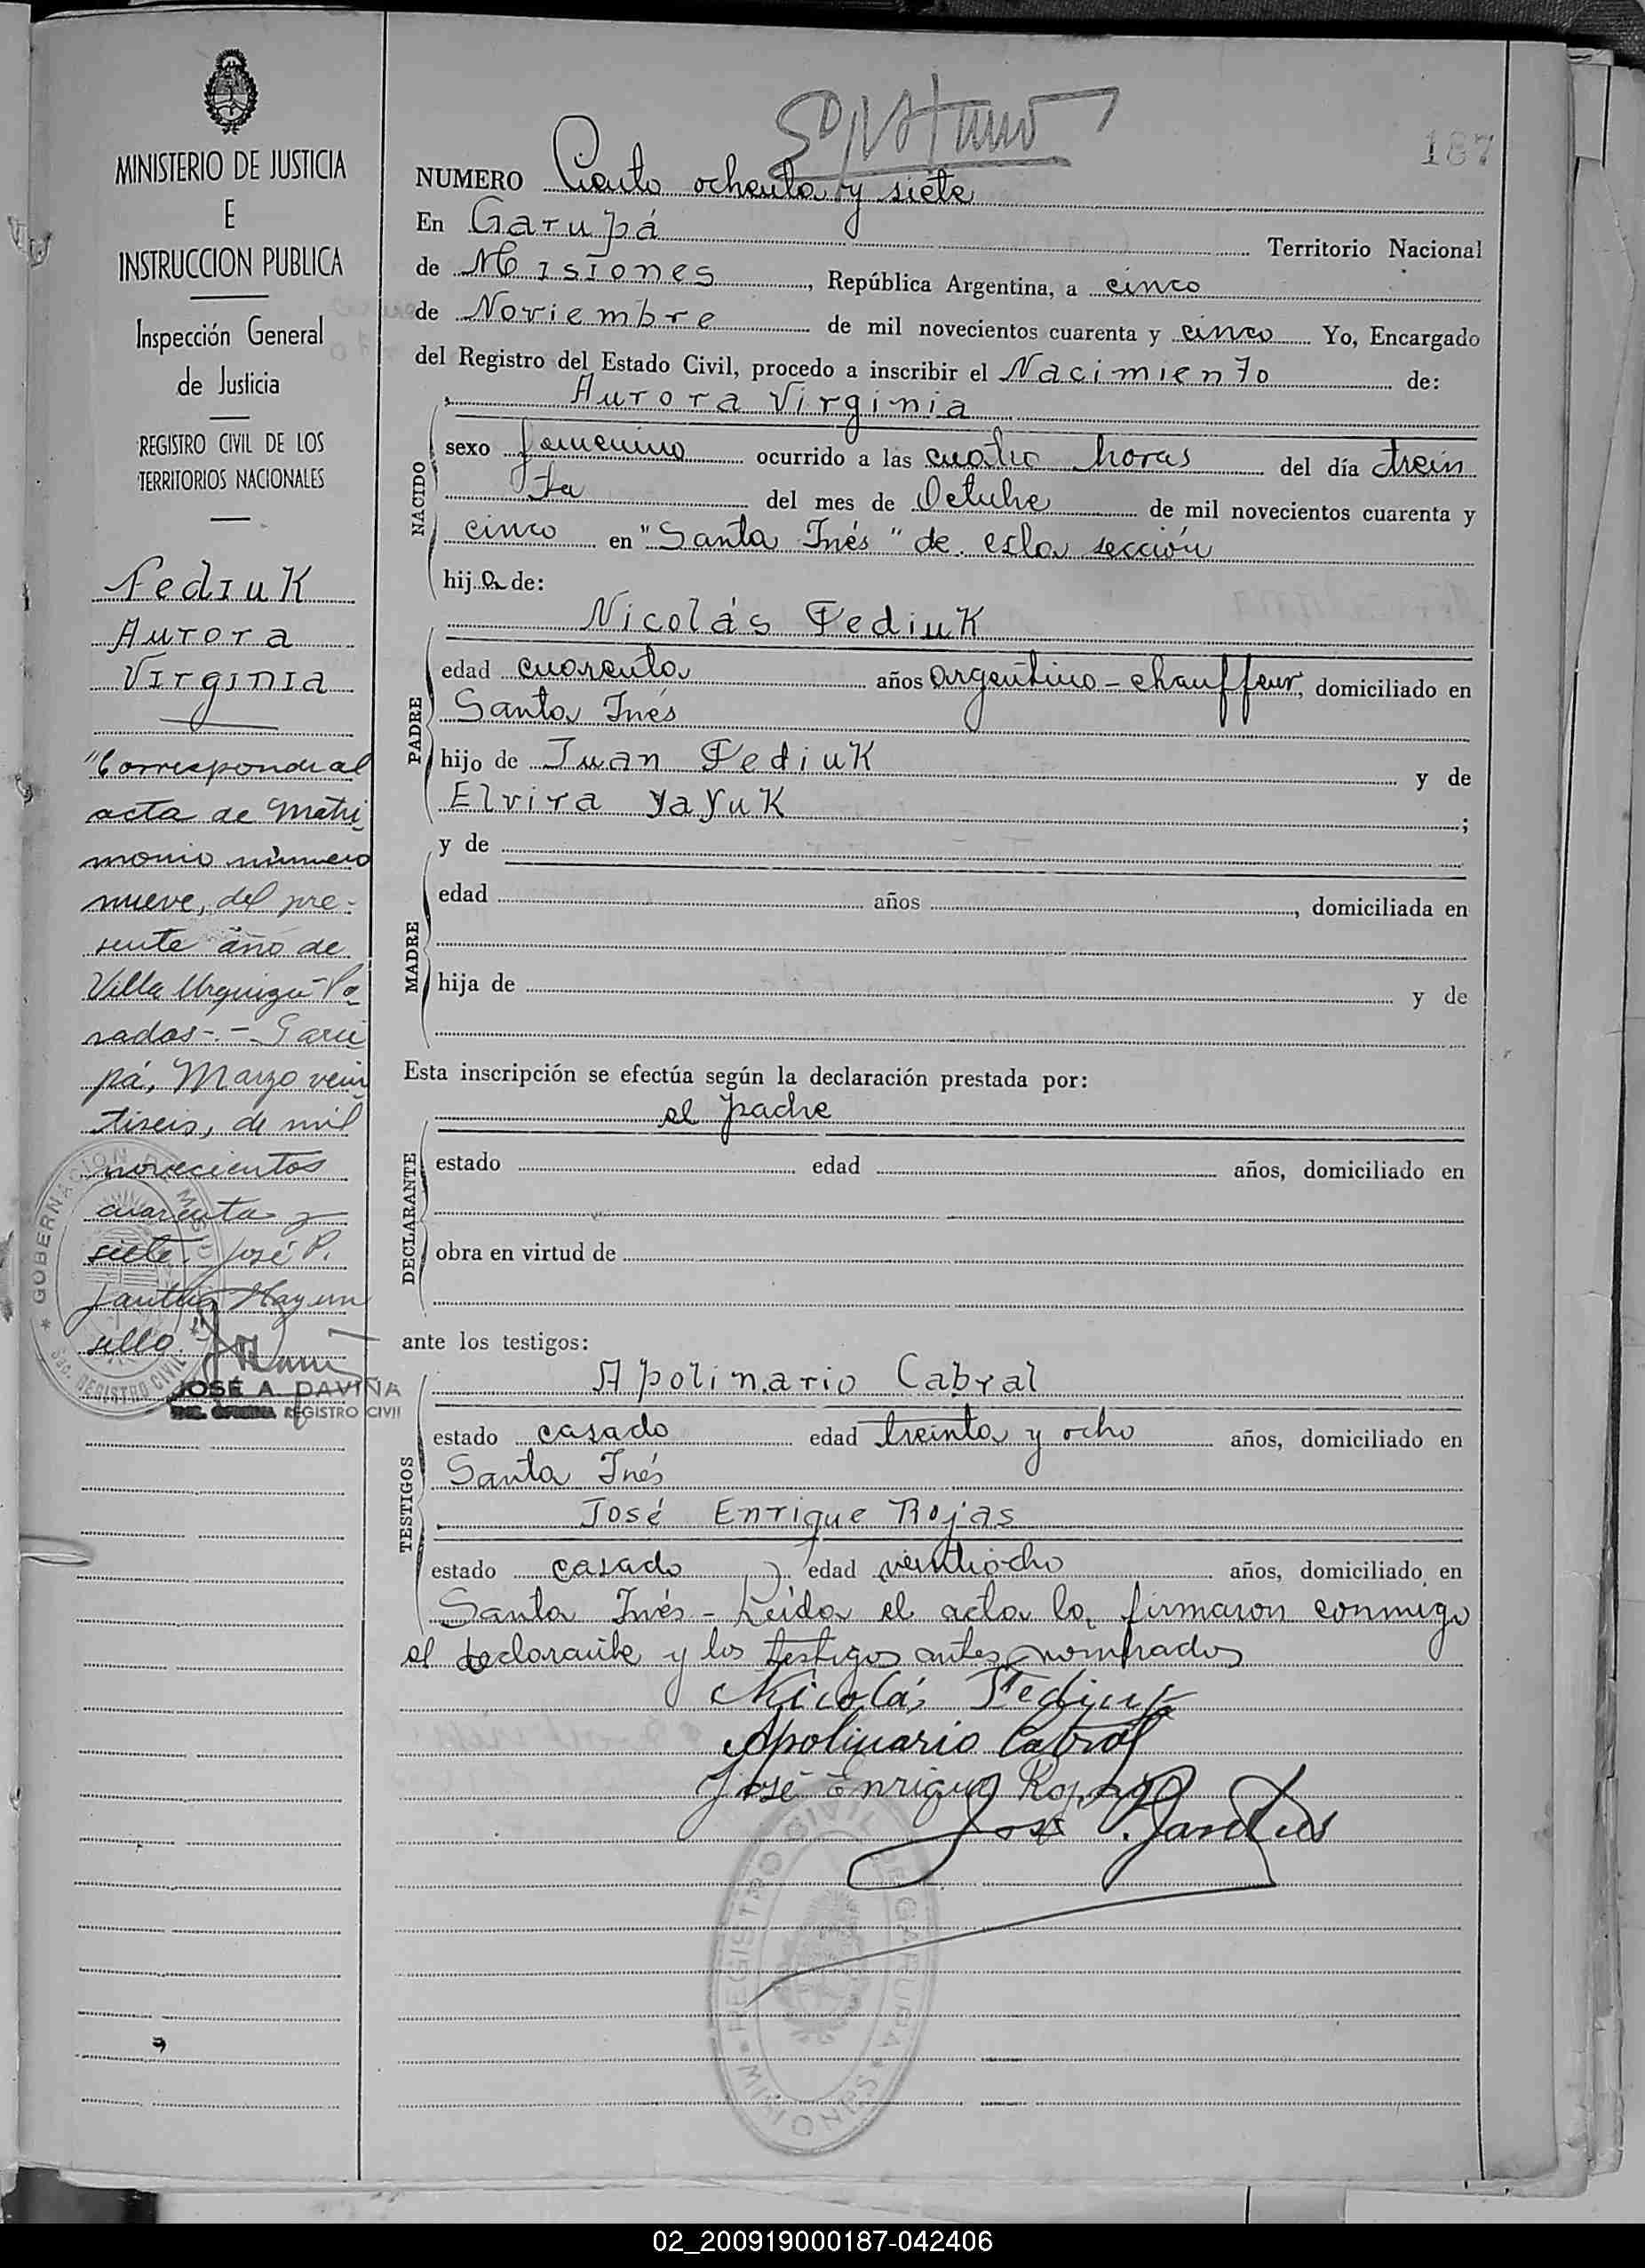 MINISTERIO DE JUSTICIA
E
INSTRUCCION PUBLICA
Inspección General
de Justicia
REGISTRO CIVIL DE LOS
TERRITORIOS NACIONALES
Fediuk
Aurora
Virginia
"Corresponde al
acta de Matri
monio número
nueve, del pre-
sente año de
Villa Urquiza Po
sadas-.- Garu
pá, Marzo vein
tiseis, de mil
novecientos
cuarenta y
siete. José P.
Hay un
sello."
GOBERNACION DE
REGISTRO CIVIL
JOSÉ A. DAVIÑA
REGISTRO CIVIL
187
NUMERO Ciento ochenta y siete
En Garupá Territorio Nacional
de Misiones, República Argentina, a cinco
de Noviembre de mil novecientos cuarenta y cinco Yo, Encargado
del Registro del Estado Civil, procedo a inscribir el Nacimiento de:
Aurora Virginia
NACIDO
sexo femenino ocurrido a las cuatro horas del día trein
ta del mes de Octubre de mil novecientos cuarenta y
cinco en "Santa Inés" de esta sección
hija de:
Nicolás Fediuk
PADRE
edad cuarenta años argentino - chauffeur, domiciliado en
Santa Inés
hijo de Juan Fediuk y de
Elvira Yayuk;
y de
MADRE
edad años, domiciliada en
hija de y de
Esta inscripción se efectúa según la declaración prestada por:
el padre
DECLARANTE
estado edad años, domiciliado en
obra en virtud de
ante los testigos:
Apolinario Cabral
TESTIGOS
estado casado edad treinta y ocho años, domiciliado en
Santa Inés
José Enrique Rojas
estado casado edad veintiocho años, domiciliado en
Santa Inés - Leida el acta la firmaron conmigo
el declarante y los testigos antes nombrados
Nicolás Fediuk
Apolinario Cabral
José Enrique Rojas
REGISTRO CIVIL DE GARUPA
MISIONES
02_200919000187-042406